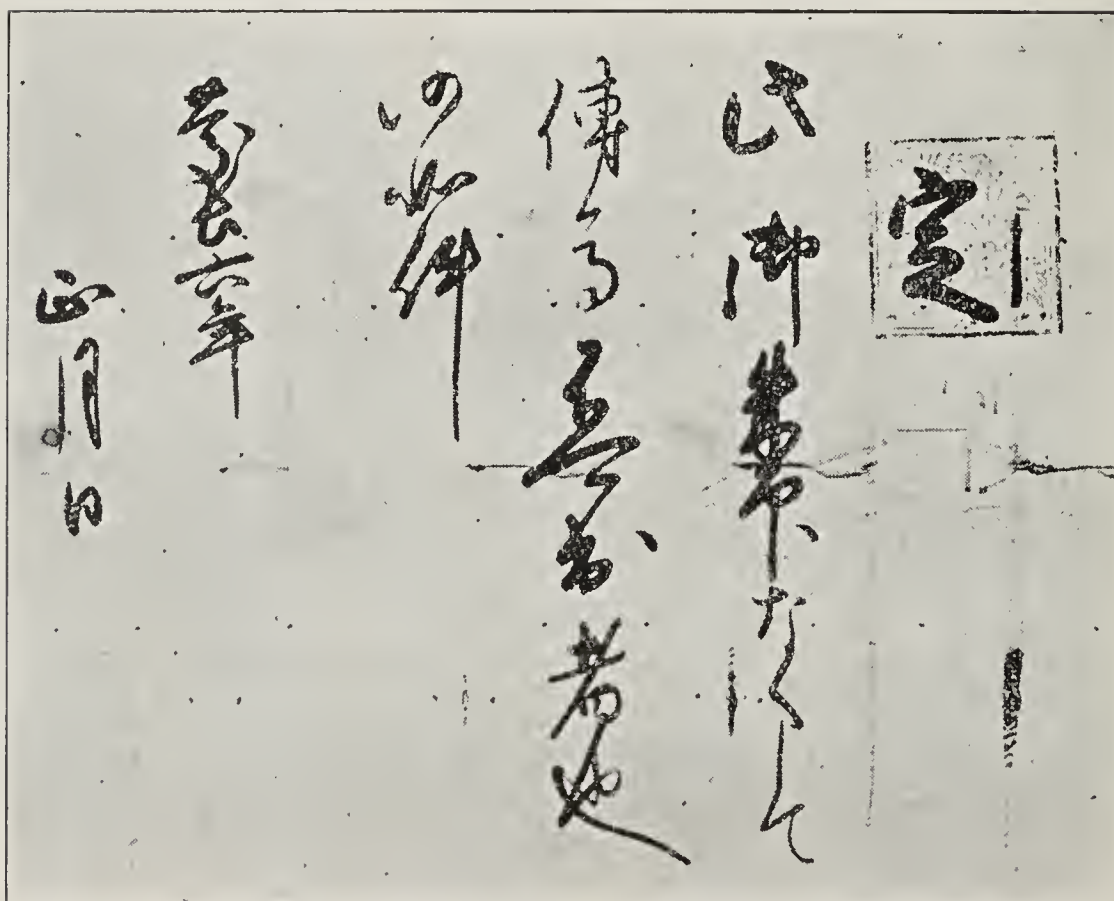 定
此御朱印なくして
傳馬不可出者也
仍如件
慶長六年
正月日